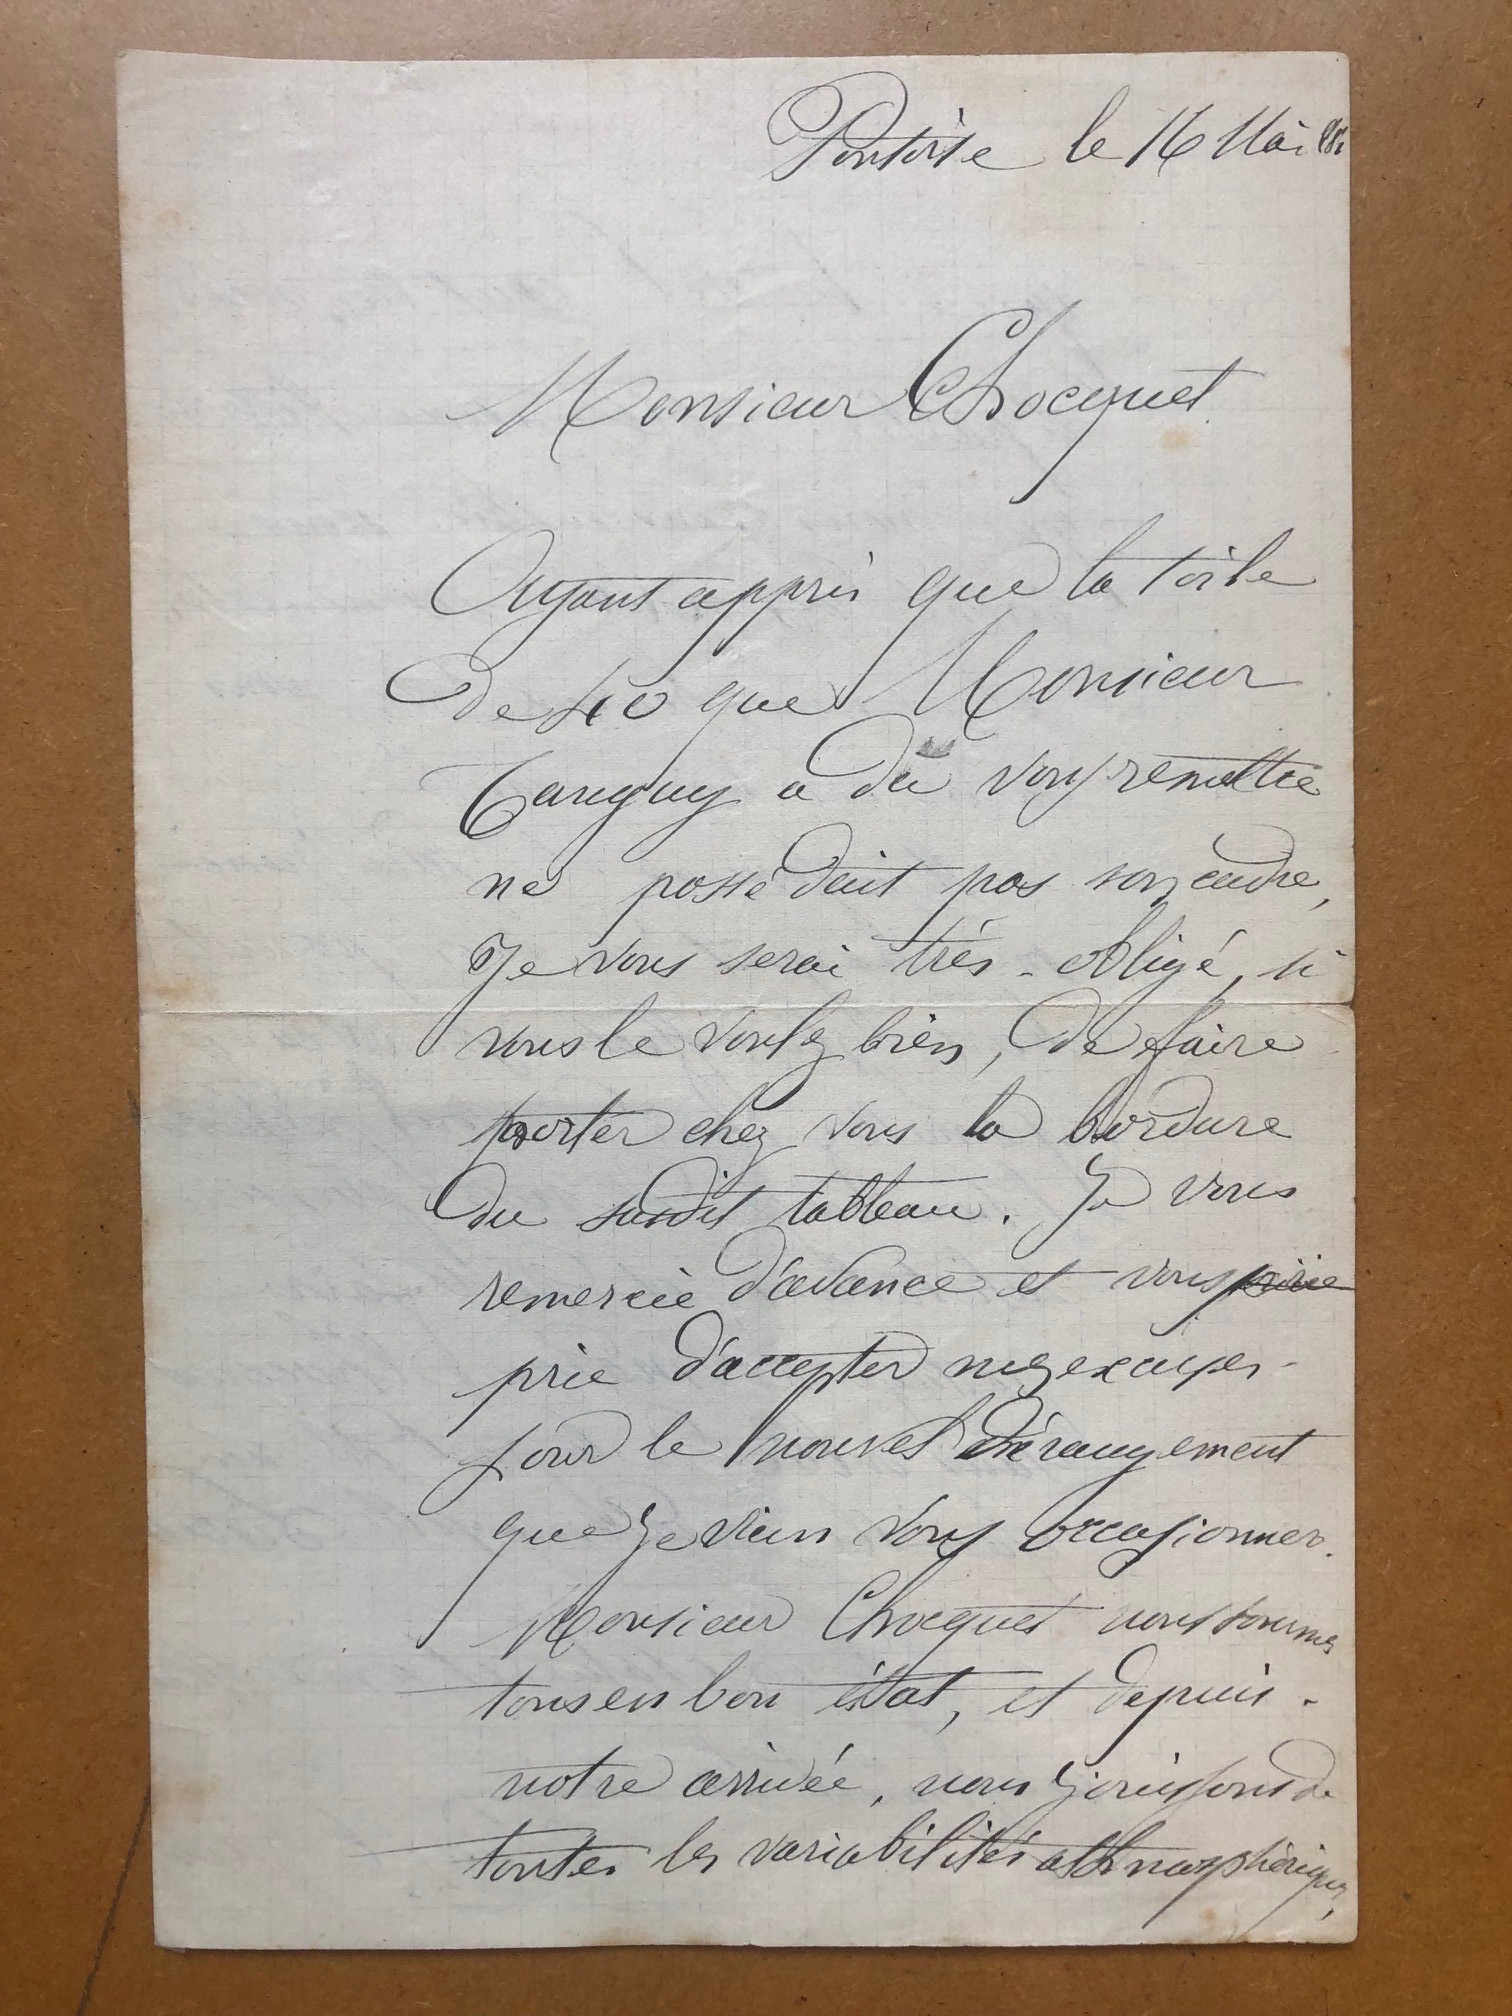 Pontoise le 16 Mai
Monsieur Chocquet
Ayant appris que la toile
de 40 que Monsieur
Tanguy a dû vous remettre
ne possédait pas son cadre,
Je vous serai très-obligé, si
vous le voulez bien, de faire
porter chez vous la bordure
du susdit tableau. Je vous
remercie d'avance et vous prie
prie d'accepter mes excuses
pour le nouvel dérangement
que je vien vous occasionner.
Monsieur Chocquet nous sommes
tous en bon état, et depuis
notre arrivée, nous jouissons de
toutes les variabilités athmosphériques,